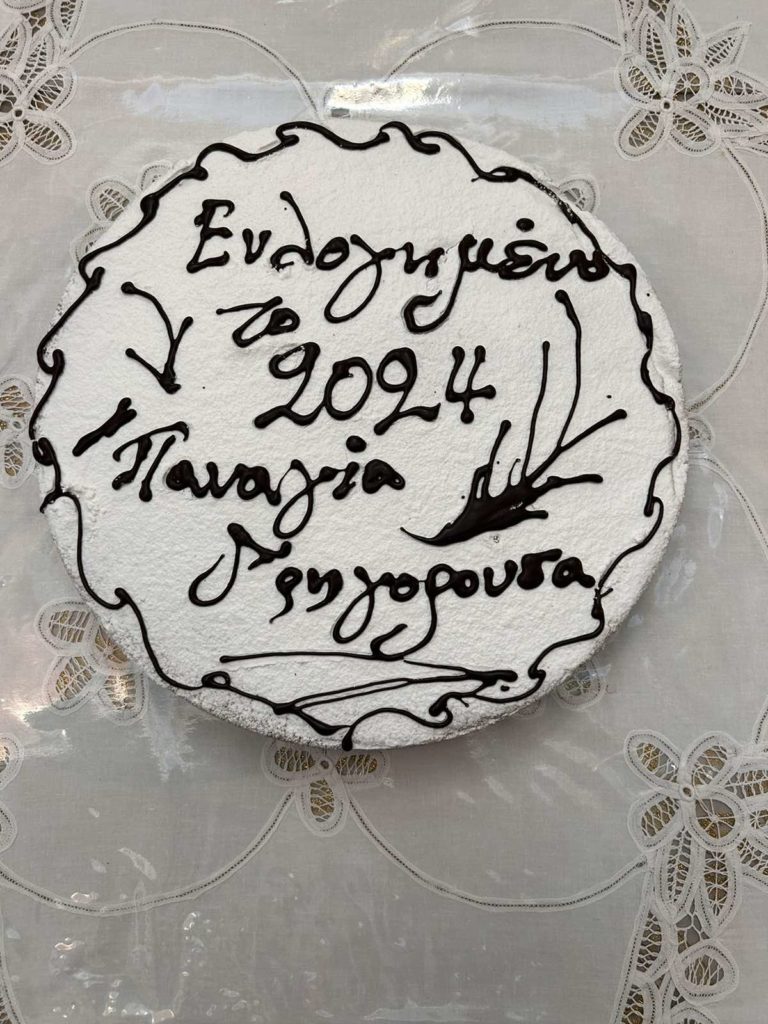 Ευλογημένο
το
2024
Παναγία
Γρηγορουσα